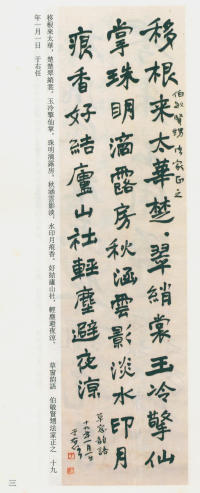 伯敏賢甥 法家正之
移根来太華楚〻翠綃裳玉冷擎仙
掌珠明滴露房秋涵雲影淡水印月
痕香好結廬山社輕塵避夜涼
草窗韵語
十九年一月一日
于右任
移根來太華，楚楚翠綃裳。玉冷擎仙掌，珠明滴露房。秋涵雲影淡，水印月痕香。好結廬山社，輕塵避夜凉。 草窗韵語 伯敏賢甥法家正之 十九
年一月一日 于右任
三